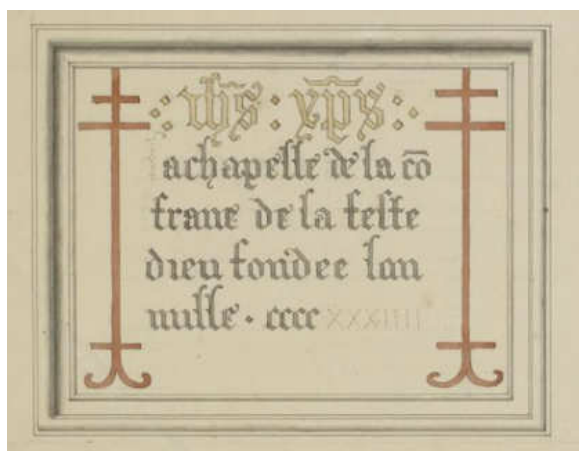 : ihs : xps :
achapelle de la cō
frarie de la feste
dieu fondee lan
mille · cccc XXXIIII